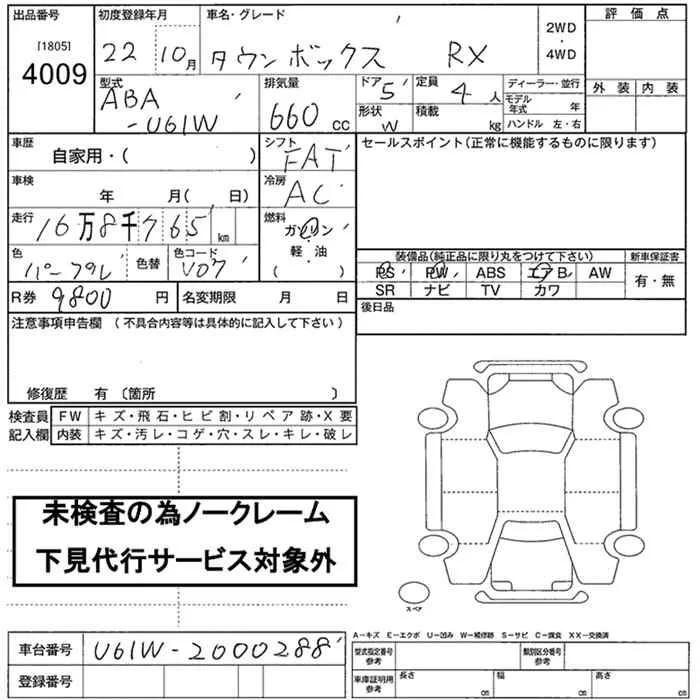 出品番号 初度登録年月 車名・グレード 評価点
[1805] 22 10月 タウンボックス RX 2WD・4WD
4009 外装 内装
型式 ABA-U61W 排気量 660 cc ドア 5 定員 4人 ディーラー・並行
形状 W 積載 kg モデル年式 年
ハンドル 左・右
車歴 自家用・( ) シフト FAT セールスポイント(正常に機能するものに限ります)
車検 年 月( 日) 冷房 AC
走行 16万8千765km 燃料 ガソリン・軽・油 ( )
色 パープル 色替 色コード V07
装備品(純正品に限り丸をつけて下さい) 新車保証書
PS PW ABS エアB AW 有・無
SR ナビ TV カワ
R券 9800円 名変期限 月 日 後日品
注意事項申告欄 (不具合内容等は具体的に記入して下さい)
修復歴 有 〔箇所 〕
検査員 FW キズ・飛石・ヒビ割・リペア跡・X要
記入欄 内装 キズ・汚レ・コゲ・穴・スレ・キレ・破レ
未検査の為ノークレーム
下見代行サービス対象外
スペア
A-キズ E-エクボ U-凹み W-補修跡 S-サビ C-腐食 XX-交換済
車台番号 U61W-2000288
型式指定番号 参考 類別区分番号 参考
登録番号
車庫証明用 参考 長さ cm 幅 cm 高さ cm